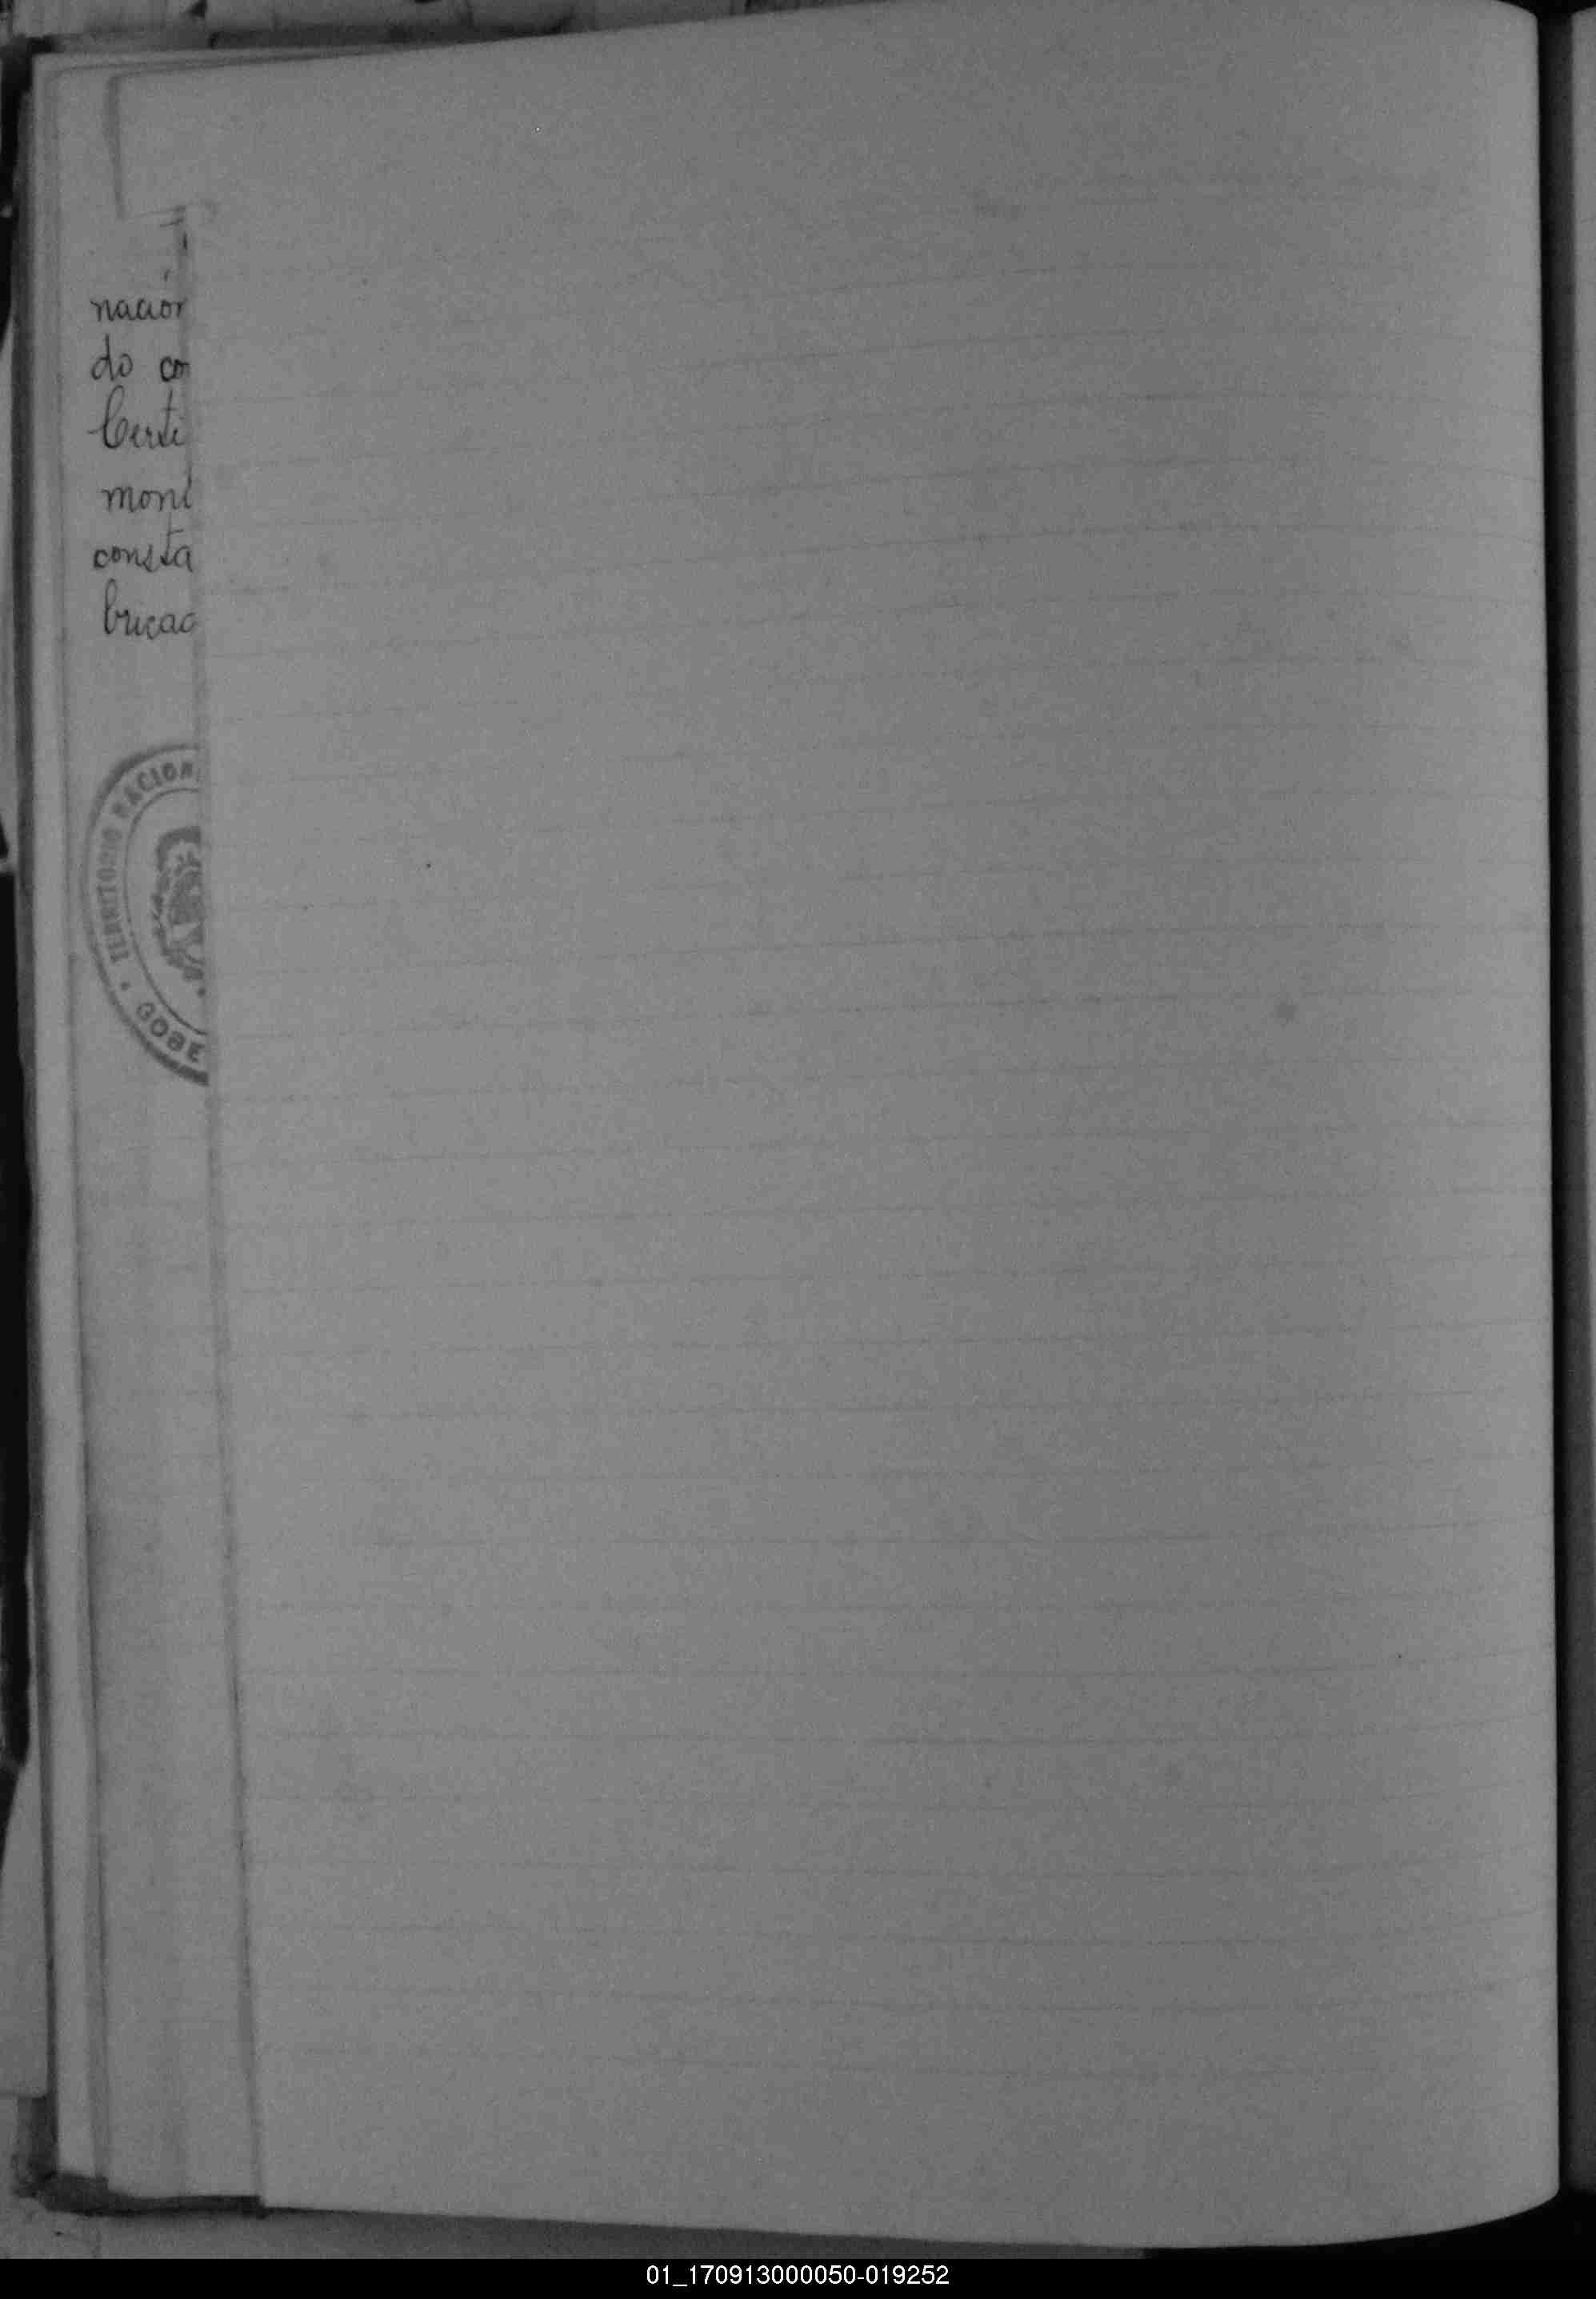 nación
do con
Certi
moni
consta
bricac
TERRITORIO NACION
GOBE
01_170913000050-019252